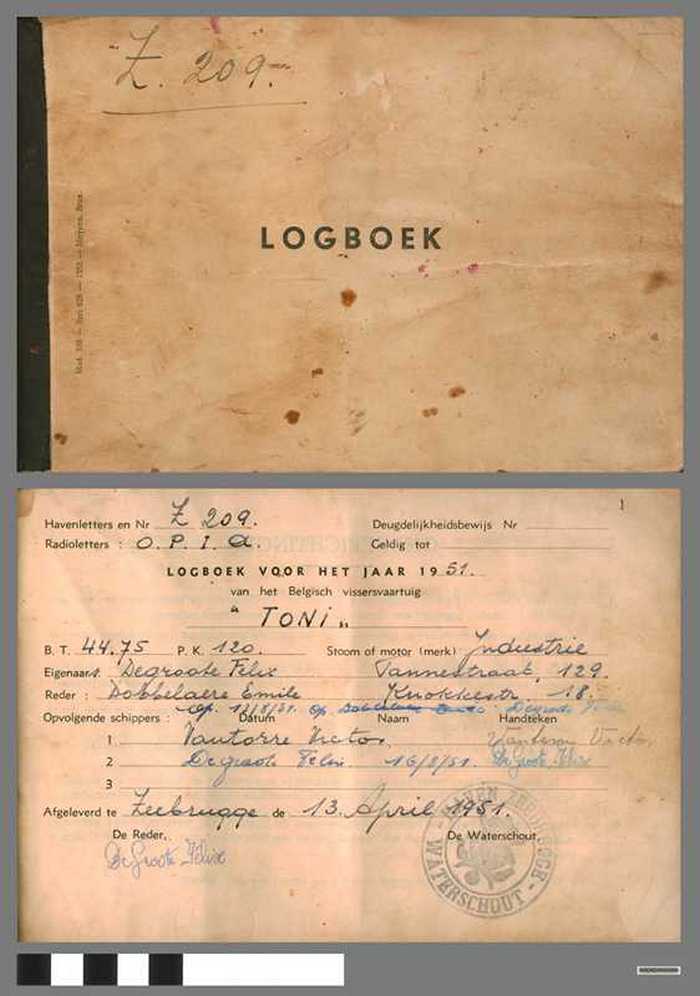 Z. 209.
LOGBOEK
1
Havenletters en Nr Z 209.
Deugdelijkheidsbewijs Nr
Radioletters : O. P. I. A.
Geldig tot
LOGBOEK VOOR HET JAAR 1951.
van het Belgisch vissersvaartuig
"TONI"
B. T. 44.75 P. K. 120. Stoom of motor (merk) Industrie
Eigenaars. Degroote Felix Vannestraat, 129.
Reder : Dobbelaere Emile Knokkestr. 18.
Opvolgende schippers : Datum Naam Handteken
1 Vantorre Victor
2 Degroote Felix. 16/8/51. DeGroote Felix
3
Afgeleverd te Zeebrugge de 13. April 1951.
De Reder, De Waterschout,
DeGroote Felix
WATERSCHOUT